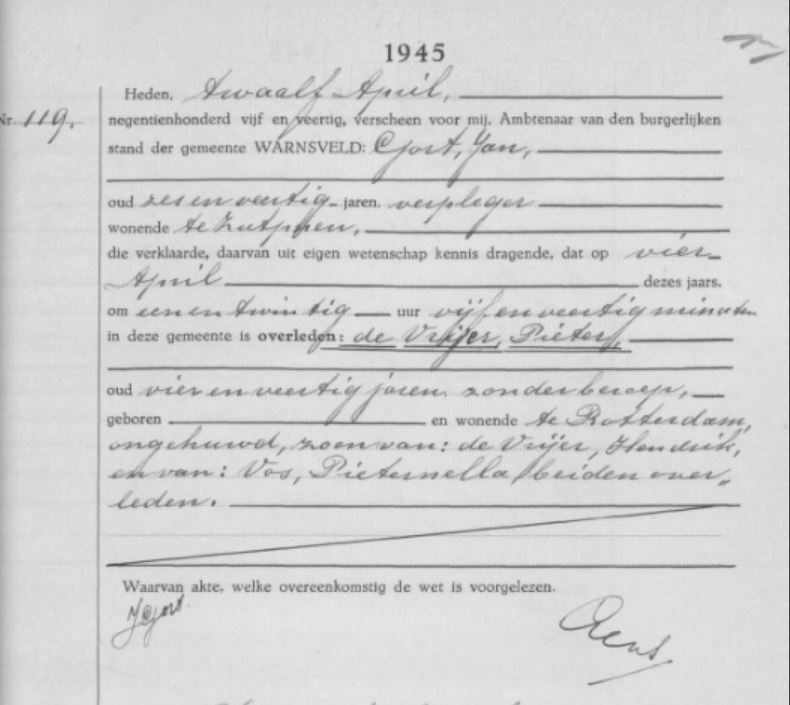 1945
Nr. 119.
Heden, twaalf April,
negentienhonderd vijf en veertig, verscheen voor mij, Ambtenaar van den burgerlijken
stand der gemeente WARNSVELD: Gjort, Jan,
oud zes en veertig jaren, verpleger
wonende te Zutphen,
die verklaarde, daarvan uit eigen wetenschap kennis dragende, dat op vier
April dezes jaars,
om een en twintig uur vijf en veertig minuten
in deze gemeente is overleden: de Vrijer, Pieter,
oud vier en veertig jaren, zonder beroep,
geboren en wonende te Rotterdam,
ongehuwd, zoon van: de Vrijer, Hendrik,
en van: Vos, Pieternella, beiden over„
leden.
Waarvan akte, welke overeenkomstig de wet is voorgelezen.